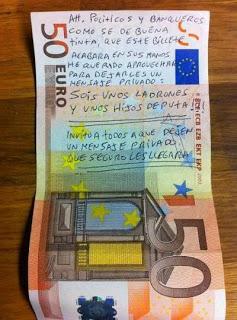 Att. Políticos y Banqueros
COMO SE DE BUENA
TINTA, QUE ESTE BILLETE
ACABARA EN SUS MANOS
HE QUERIDO APROVECHAR
PARA DEJARLES UN
MENSAJE PRIVADO:
SOIS UNOS LADRONES
Y UNOS HIJOS DE PUTA
INVITO A TODOS A QUE DEJEN
UN MENSAJE PRIVADO
QUE SEGURO LES LLEGARA
50 EURO
ECB EZB EKT EKP 2002
50